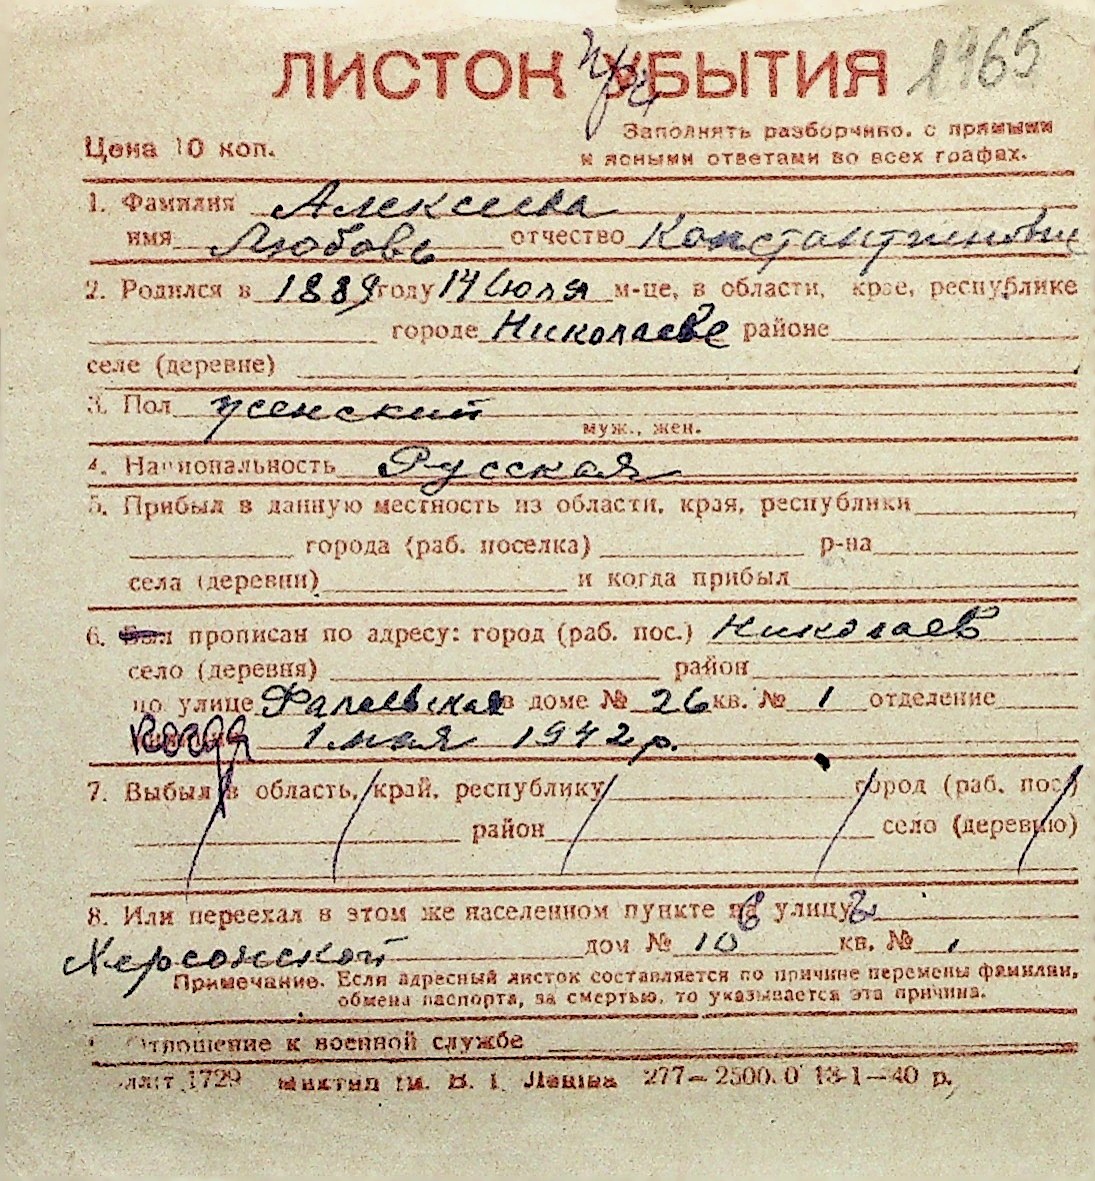 ЛИСТОК УБЫТИЯ при 1965
Цена 10 коп.
Заполнять разборчиво, с прямыми
и ясными ответами во всех графах.
1. Фамилия Алексеева
имя Любовь отчество Константиновн
2. Родился в 1889 году 14 июля м-це, в области, крае, республике
городе Николаеве районе
селе (деревне)
3. Пол женский
муж., жен.
4. Национальность Русская
5. Прибыл в данную местность из области, края, республики
города (раб. поселка) р-на
села (деревни) и когда прибыл
6. Был прописан по адресу: город (раб. пос.) Николаев
село (деревня) район
по улице Фалеевская в доме № 26 кв. № 1 отделение
когда 1 мая 1942 р.
7. Выбыл в область, край, республику город (раб. пос.)
район село (деревню)
8. Или переехал в этом же населенном пункте на улицу
Херсонской дом № 10 кв. № 1
Примечание. Если адресный листок составляется по причине перемены фамилии,
обмена паспорта, за смертью, то указывается эта причина.
Отношение к военной службе
1729 им. В. І. Леніна 277—2500.0 13-1—40 р.